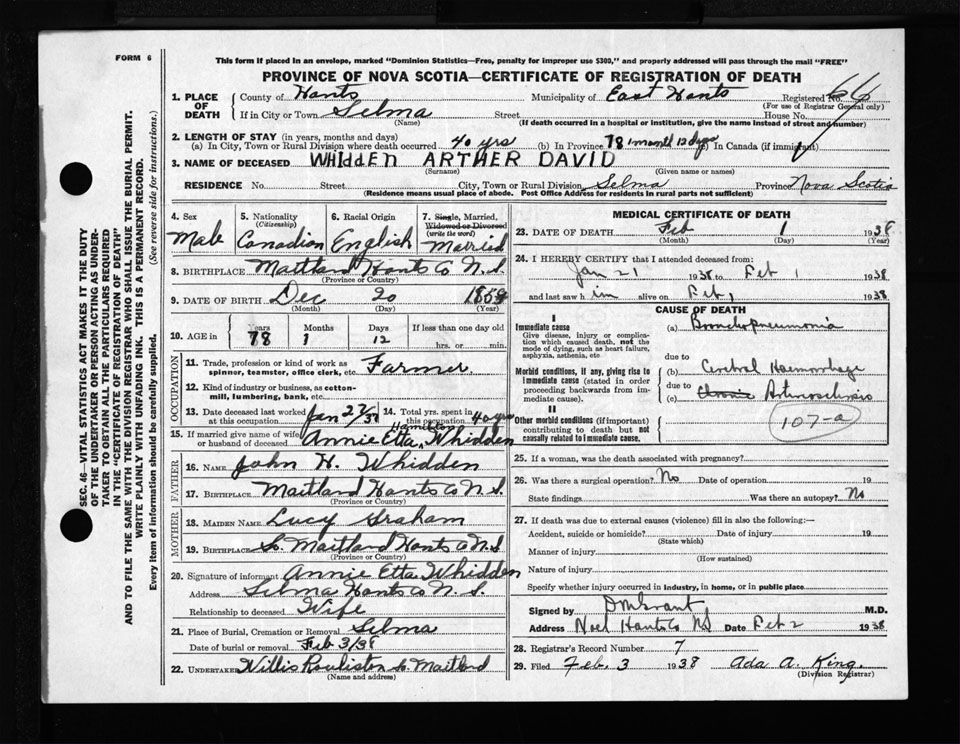 FORM 6
This form if placed in an envelope, marked "Dominion Statistics—Free, penalty for improper use $300," and properly addressed will pass through the mail "FREE"
PROVINCE OF NOVA SCOTIA—CERTIFICATE OF REGISTRATION OF DEATH
1. PLACE OF DEATH
County of Hants Municipality of East Hants Registered No. 66
(For use of Registrar General only)
If in City or Town Selma Street House No.
(Name) (If death occurred in a hospital or institution, give the name instead of street and number)
2. LENGTH OF STAY (in years, months and days)
(a) In City, Town or Rural Division where death occurred 40 yrs (b) In Province 78 1 month 12 days In Canada (if immigrant)
3. NAME OF DECEASED WHIDDEN ARTHER DAVID
(Surname) (Given name or names)
RESIDENCE No. Street City, Town or Rural Division Selma Province Nova Scotia
(Residence means usual place of abode. Post Office Address for residents in rural parts not sufficient)
4. Sex
Male
5. Nationality
(Citizenship)
Canadian
6. Racial Origin
English
7. Single, Married,
Widowed or Divorced
(write the word)
Married
8. BIRTHPLACE Maitland Hants Co N.S.
(Province or Country)
9. DATE OF BIRTH Dec 20 1859
(Month) (Day) (Year)
10. AGE in
Years Months Days If less than one day old
78 1 12 hrs. or min.
OCCUPATION
11. Trade, profession or kind of work as
spinner, teamster, office clerk, etc. Farmer
12. Kind of industry or business, as cotton-
mill, lumbering, bank, etc.
13. Date deceased last worked
at this occupation Jan 27/38
14. Total yrs. spent in
this occupation 40 yrs
15. If married give name of wife
or husband of deceased Annie Etta Hamilton Whidden
FATHER
16. NAME John H. Whidden
17. BIRTHPLACE Maitland Hants Co N.S.
(Province or Country)
MOTHER
18. MAIDEN NAME Lucy Graham
19. BIRTHPLACE So. Maitland Hants Co N.S
(Province or Country)
20. Signature of informant Annie Etta Whidden
Address Selma Hants Co N.S.
Relationship to deceased Wife
21. Place of Burial, Cremation or Removal Selma
Date of burial or removal Feb 3/38
22. UNDERTAKER Willis So. Maitland
(Name and address)
MEDICAL CERTIFICATE OF DEATH
23. DATE OF DEATH Feb 1 1938
(Month) (Day) (Year)
24. I HEREBY CERTIFY that I attended deceased from:
Jan 21 1938 to Feb 1 1938
and last saw him alive on Feb 1 1938
CAUSE OF DEATH
I
Immediate cause
Give disease, injury or complica-
tion which caused death, not the
mode of dying, such as heart failure,
asphyxia, asthenia, etc
(a) Bronchopneumonia
due to
Morbid conditions, if any, giving rise to
immediate cause (stated in order
proceeding backwards from im-
mediate cause).
(b) Cerebral Haemorrhage
due to
(c) Chronic Arteriosclerosis
II
Other morbid conditions (if important)
contributing to death but not
causally related to immediate cause.
107-a
25. If a woman, was the death associated with pregnancy?
26. Was there a surgical operation? No Date of operation 19
State findings Was there an autopsy? No
27. If death was due to external causes (violence) fill in also the following:—
Accident, suicide or homicide? Date of injury 19
(State which)
Manner of injury
(How sustained)
Nature of injury
Specify whether injury occurred in industry, in home, or in public place
Signed by M.D.
Address Noel Hants Co NS Date Feb 2 1938
28. Registrar's Record Number 7
29. Filed Feb. 3 1938 Ada A. King.
(Division Registrar)
SEC. 46—VITAL STATISTICS ACT MAKES IT THE DUTY
OF THE UNDERTAKER OR PERSON ACTING AS UNDER-
TAKER TO OBTAIN ALL THE PARTICULARS REQUIRED
IN THE "CERTIFICATE OF REGISTRATION OF DEATH"
AND TO FILE THE SAME WITH THE DIVISION REGISTRAR WHO SHALL ISSUE THE BURIAL PERMIT.
WRITE PLAINLY WITH UNFADING INK. THIS IS A PERMANENT RECORD.
Every item of information should be carefully supplied. (See reverse side for instructions.)